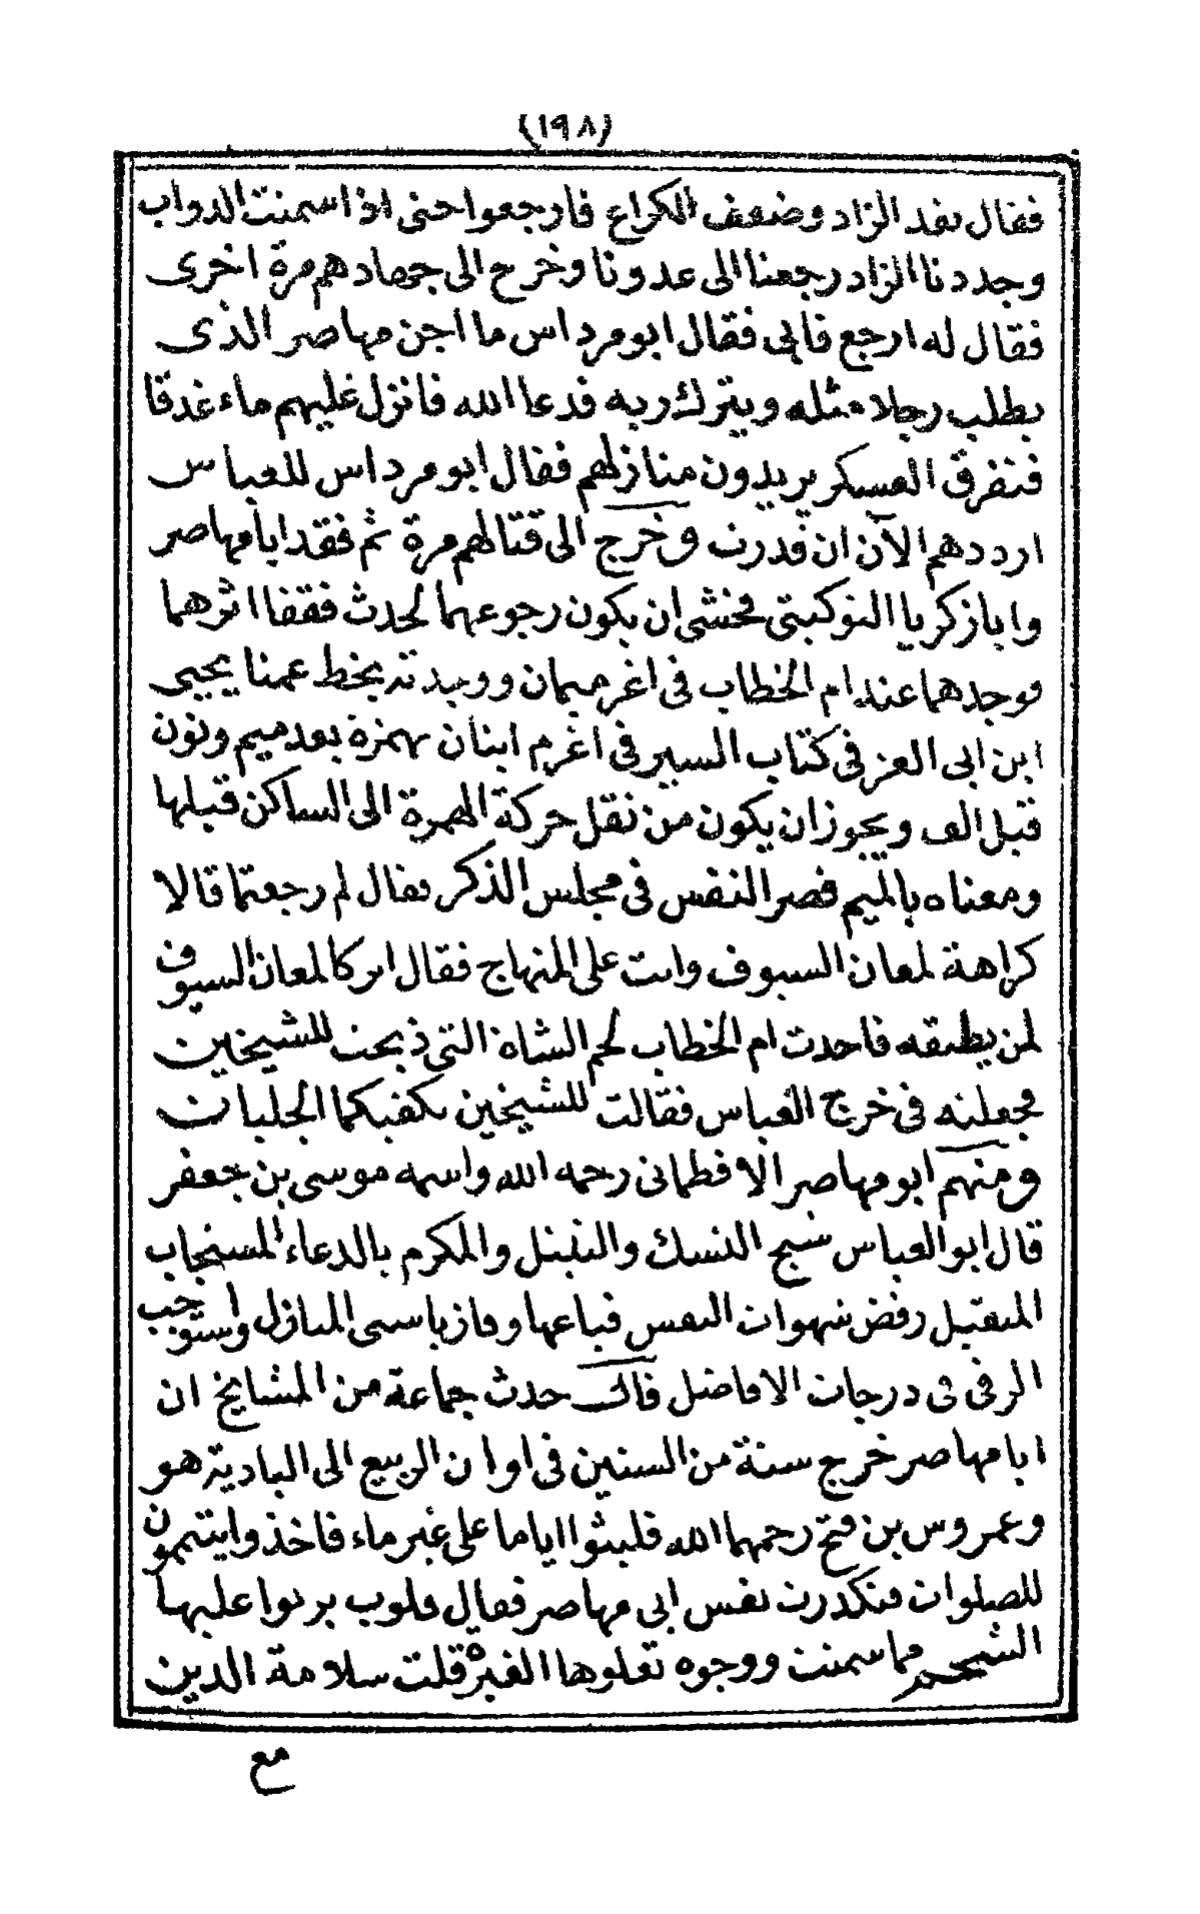 (١٩٨)
فقال نفد الزاد وضعف الكراع فارجعوا حتى اذا سمنت الدواب
وجددنا الزاد رجعنا الى عدونا وخرج الى جهادهم مرة اخرى
فقال له ارجع فابى فقال ابو مرداس ما اجن مهاصر الذى
يطلب رجلا مثله ويترك ربه فدعا الله فانزل عليهم ماء غدقا
فتفرق العسكر يريدون منازلهم فقال ابو مرداس للعباس
ارددهم الآن ان قدرت وخرج الى قتالهم مرة ثم فقد ابا مهاصر
وابا زكريا التوكيتى فخشى ان يكون رجوعهما لحدث فقفا اثرهما
فوجدهما عند ام الخطاب فى اغرميمان ووجدته بخط عمنا يحيى
ابن ابى العز فى كتاب السير فى اغرم اينان بهمزة بعد ميم ونون
قبل الف ويجوز ان يكون من نقل حركة الهمزة الى الساكن قبلها
ومعناه بالميم قصر النفس فى مجلس الذكر فقال لم رجعتما قالا
كراهة لمعان السيوف وانت على المنهاج فقال اتركا لمعان السيوف
لمن يطيقه فاخذت ام الخطاب لحم الشاة التى ذبحت للشيخين
فجعلته فى خرج العباس فقالت للشيخين يكفيكما الجلبات
ومنهم ابو مهاصر الافطمانى رحمه الله واسمه موسى بن جعفر
قال ابو العباس شيخ النسك والتبتل والمكرم بالدعاء المستجاب
المتقبل رفض شهوات النفس فباعها وفاز باسنى المنازل واستوجب
الرقى فى درجات الافاضل قال حدث جماعة من المشايخ ان
ابا مهاصر خرج سنة من السنين فى اوان الربيع الى البادية هو
وعمروس بن فتح رحمهما الله فلبثوا اياما على غير ماء فاخذوا يتيممون
للصلوات فتكدرت نفس ابى مهاصر فقال قلوب يربوا عليها
الشحم فما سمنت ووجوه تعلوها الغبرة قلت سلامة الدين
مع